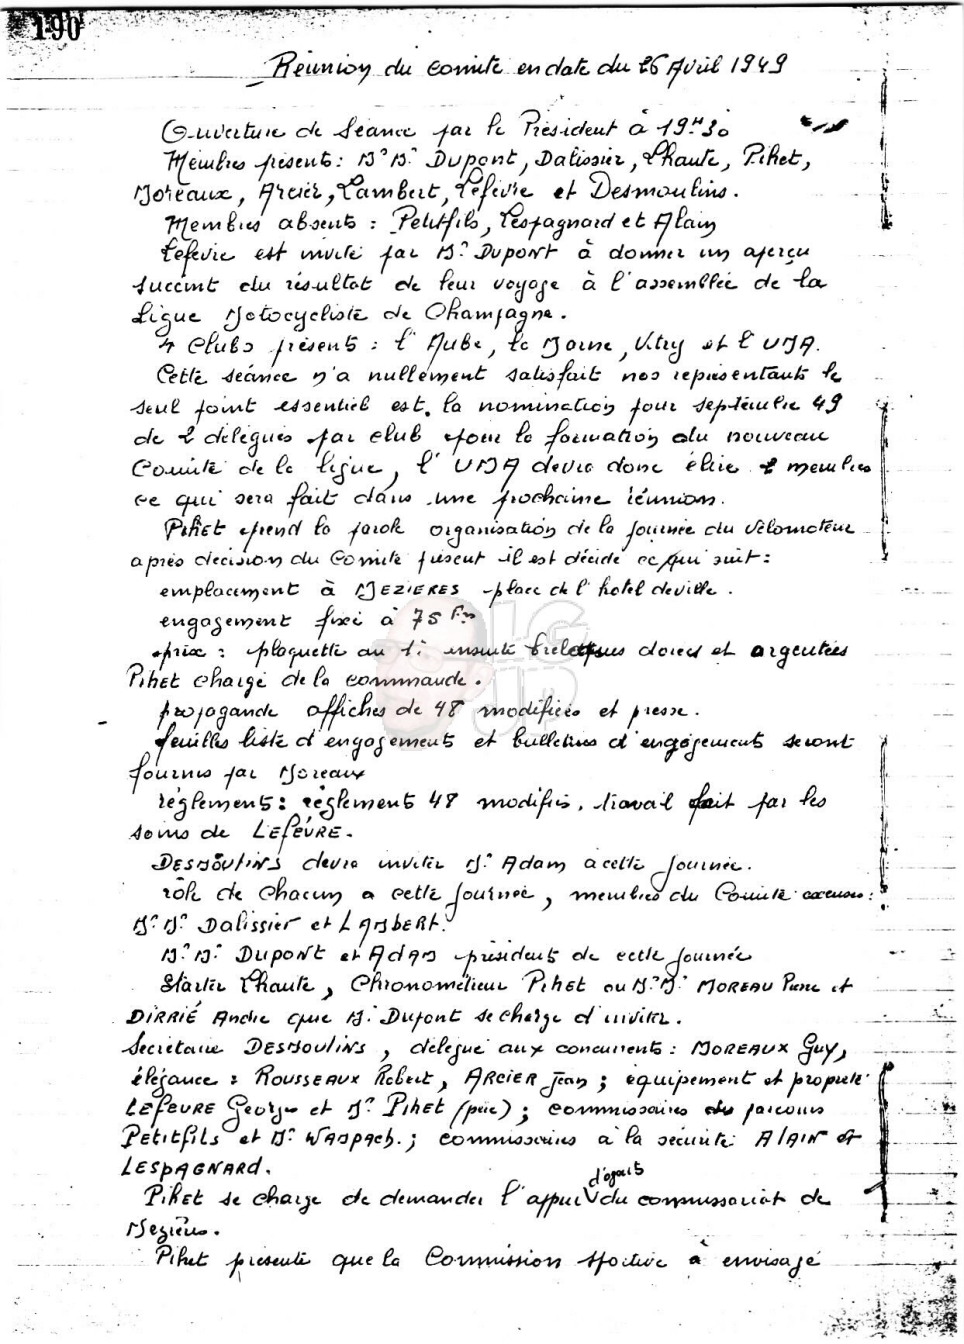 190
Réunion du comité en date du 26 Avril 1949
Ouverture de Séance par le Président à 19H30
Membres présents : Mr Mr Dupont, Dalissier, Lhaute, Pihet,
Moreaux, Arcier, Lambert, Lefèvre et Desmoulins.
Membres absents : Petitfils, Lespagnard et Alain
Lefèvre est invité par Mr Dupont à donner un aperçu
succint du résultat de leur voyage à l'assemblée de la
Ligue Motocycliste de Champagne.
4 Clubs présents : l'Aube, la Marne, Vitry et l'UMA.
Cette séance n'a nullement satisfait nos représentants le
seul point essentiel est, la nomination pour septembre 49
de 2 délégués par club pour la formation du nouveau
Comité de la ligue, l'UMA devra donc élire 2 membres
ce qui sera fait dans une prochaine réunion.
Pihet prend la parole organisation de la journée du Vélomoteur
après décision du Comité présent il est décidé ce qui suit :
emplacement à MEZIERES place de l'hotel de ville.
engagement fixé à 75 Frs
prix : plaquette au 1er ensuite breloques dorées et argentées
Pihet chargé de la commande.
propagande affiches de 48 modifiées et presse.
feuilles liste d'engagements et bulletins d'engagements seront
fournis par Moreaux
règlements : règlements 48 modifiés, travail fait par les
soins de LEFÈVRE.
DESMOULINS devra inviter Mr Adam à cette Journée.
rôle de chacun a cette Journée, membres du Comité excusés :
Mr Mr Dalissier et LAMBERT.
Mr Mr DUPONT et ADAM présidents de cette Journée
Starter Lhaute, Chronométreur PIHET ou Mr Mr MOREAU Pierre et
DIRRIÉ André que Mr Dupont se charge d'inviter.
Secrétaire DESMOULINS, délégué aux concurrents : MOREAUX Guy,
élégance : ROUSSEAUX Robert, ARCIER Jean ; équipement et propreté
LEFEVRE Georges et Mr PIHET (père) ; commissaires de parcours
PETITFILS et Mr WASPACH. ; commissaires à la sécurité ALAIN et
LESPAGNARD.
PIHET se charge de demander l'appui d'agents du commissariat de
Mézières.
Pihet présente que la Commission sportive a envisagé